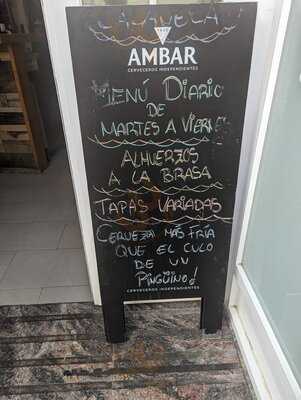 AMBAR
CERVECEROS INDEPENDIENTES
MENÚ DIARIO
DE
MARTES A VIERNE
ALMUERZOS
A LA BRASA
TAPAS VARIADAS
CERVEZA MÁS FRIA
QUE EL CULO
DE UN
PINGÜINO!
CERVECEROS INDEPENDIENTES